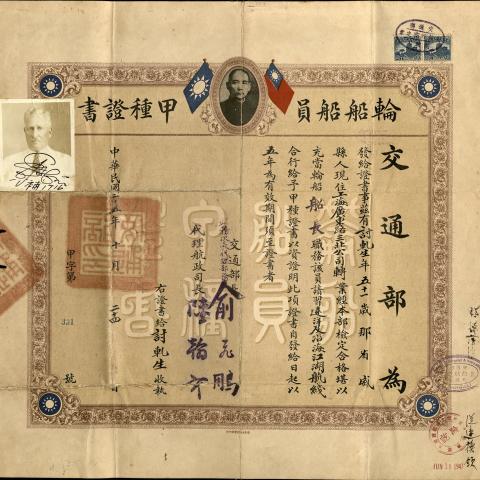 輪船船員甲種證書
交通部為
發給證書事茲有討軋生年五十一歲那省威
縣人現住上海廣東路三北公司轉業經本部檢定合格堪以
充當輪船船長職務該員諳習遠洋及沿海江湖航綫
合行給予甲種證書以資證明此項證書自發給日起以
五年為有效期間須至證書者
交通部長俞飛鵬
代理航政司長陸翰芹
右證書給討軋生收執
中華民國 年十月 日
甲字第331號
JUN 11 1947